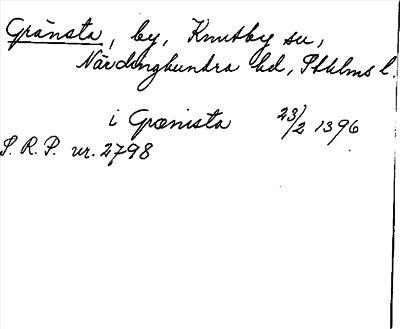 Gränsta, by, Knutby sn,
Närdinghundra hd, Sthlms l.
i Grænista 23/2 1396
S.R.P. nr. 2798